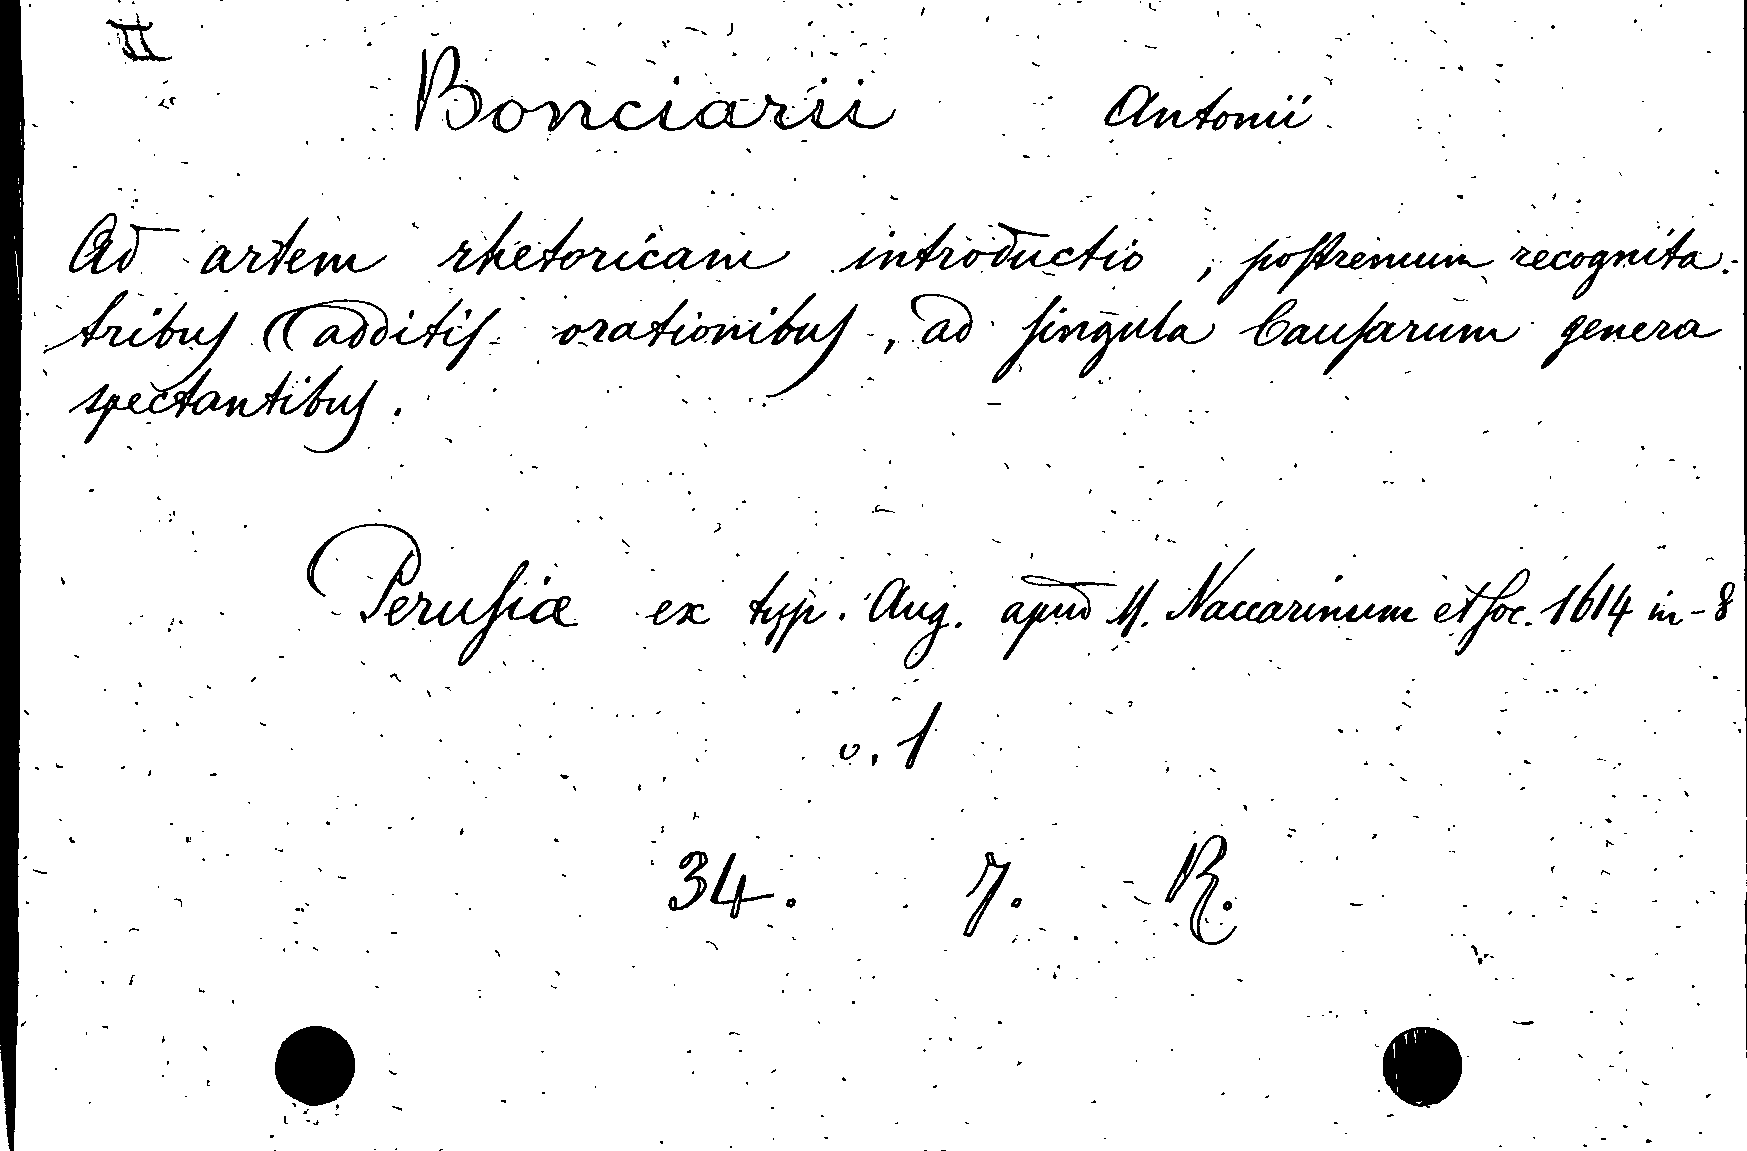 II
Bonciarii Antonii
Ad artem rhetoricam introductio, poſtremum recognita.
tribus additis orationibus, ad ſingula Cauſarum genera
spectantibus.
Peruſiæ ex typ. Aug. apud M. Naccarinum et ſoc. 1614 in-8
v. 1
34. 7. R.